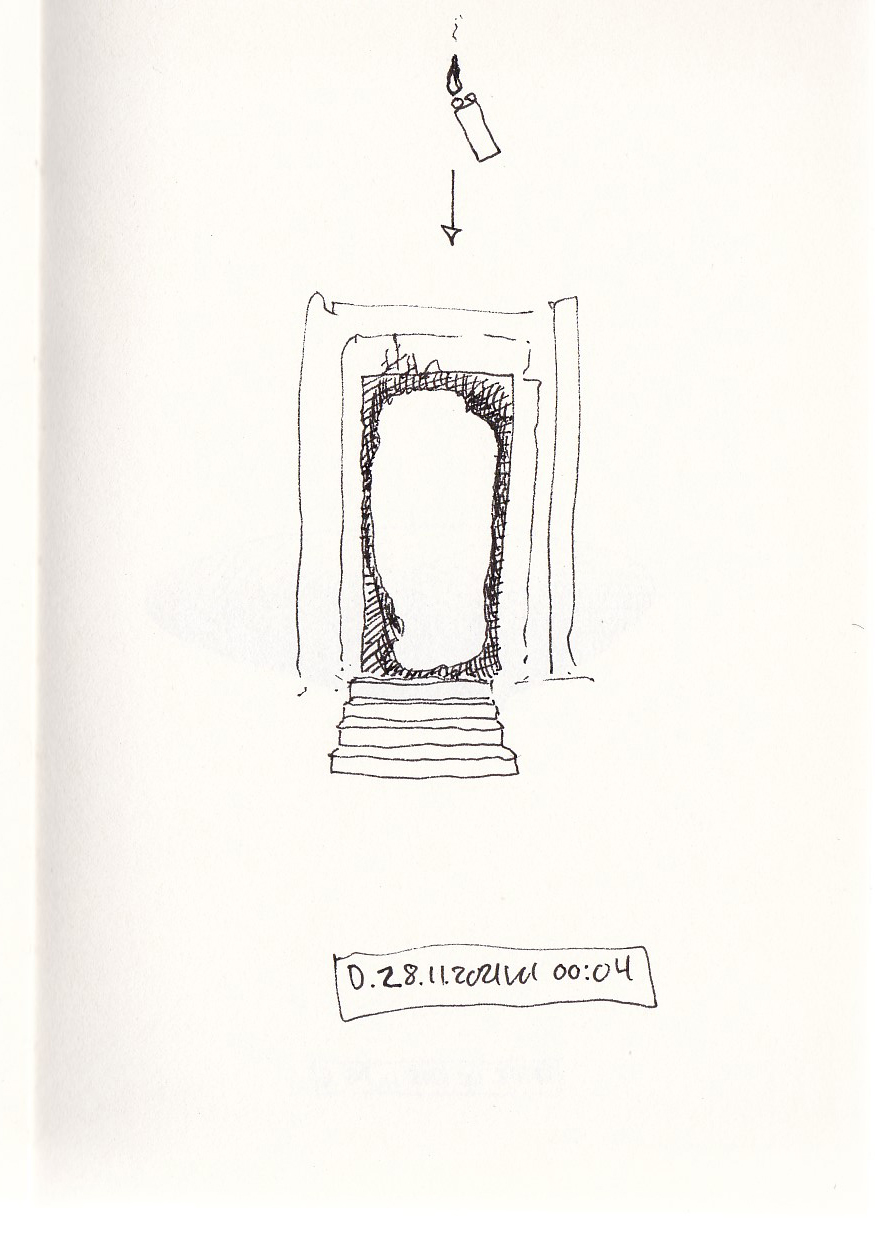 D.28.11.2021 kl 00:04